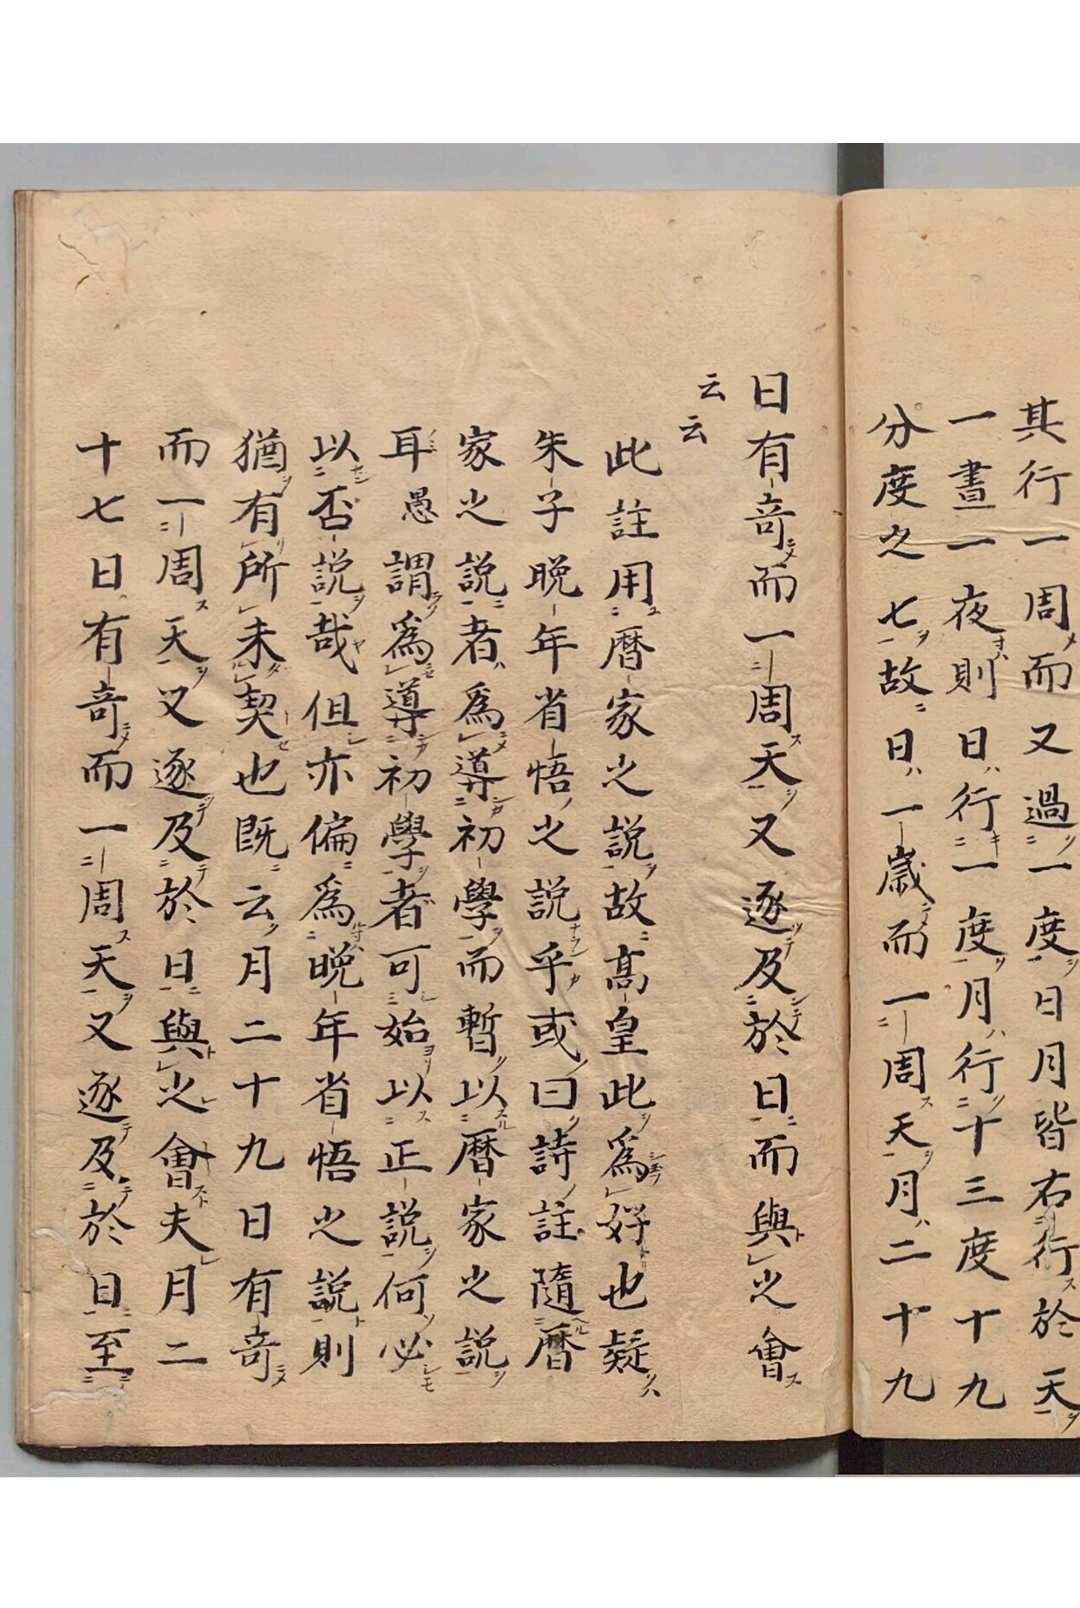 其行一周而又過一度日月皆右行於天
一晝一夜則日行一度月行十三度十九
分度之七故日一歳而一周天月二十九
日有竒而一周天又逐及於日而與之會
云云
此註用暦家之説故髙皇此為好也疑
朱子晩年省悟之説乎或曰詩註隨暦
家之説者為導初學而暫以暦家之説
耳愚謂為導初學者可始以正説何必
以否説哉但亦偏為晩年省悟之説則
猶有所未契也既云月二十九日有竒
而一周天又逐及於日與之會夫月二
十七日有竒而一周天又逐及於日至